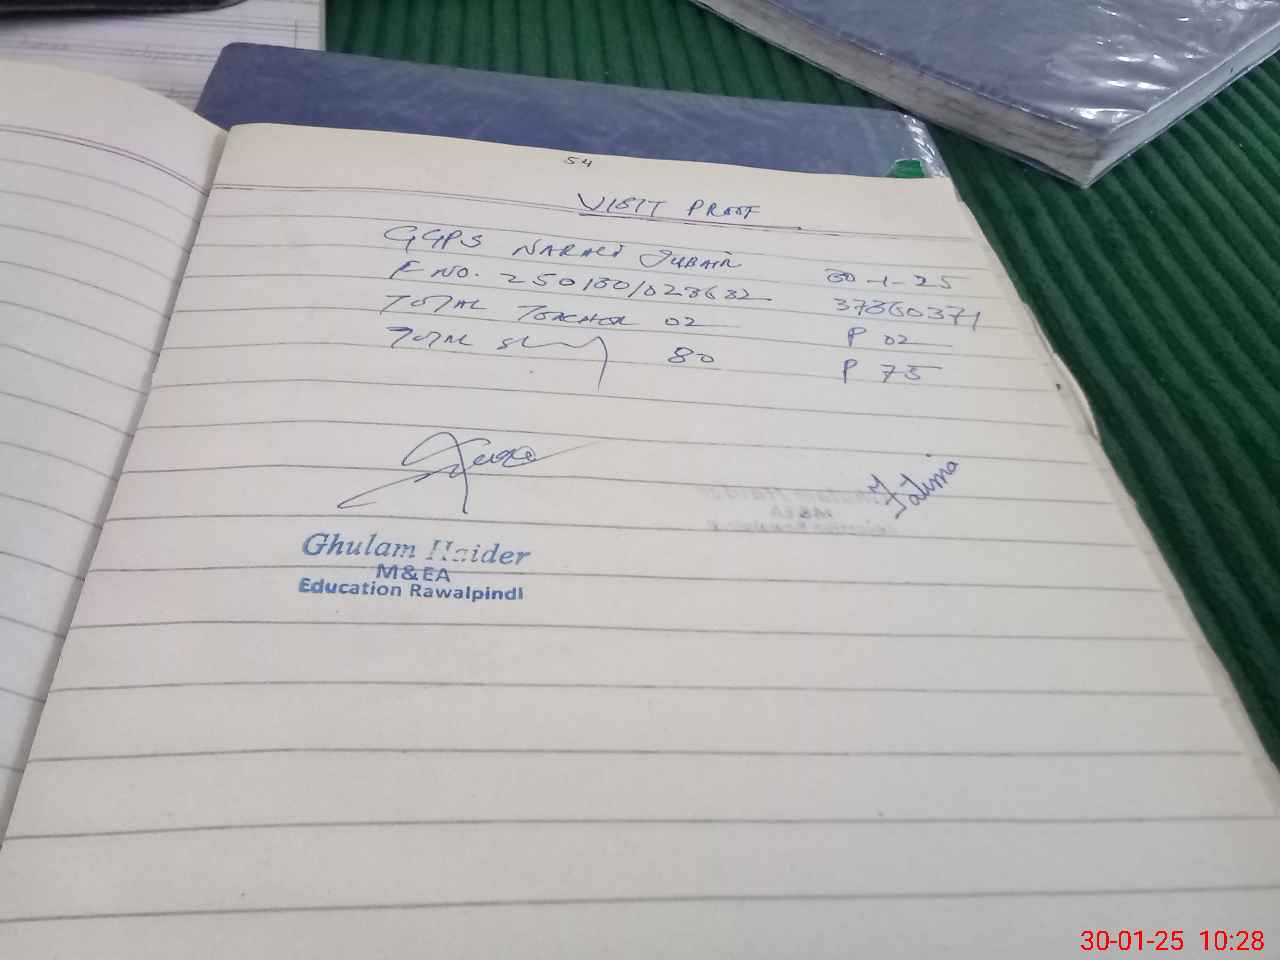 54
VISIT PROOF
GGPS NARALI JUBAIR 30-1-25
F NO. 250130/023632 37360371
TOTAL TEACHER 02 P 02
TOTAL 80 P 75
Fatima
Ghulam Haider
M&EA
Education Rawalpindi
30-01-25 10:28